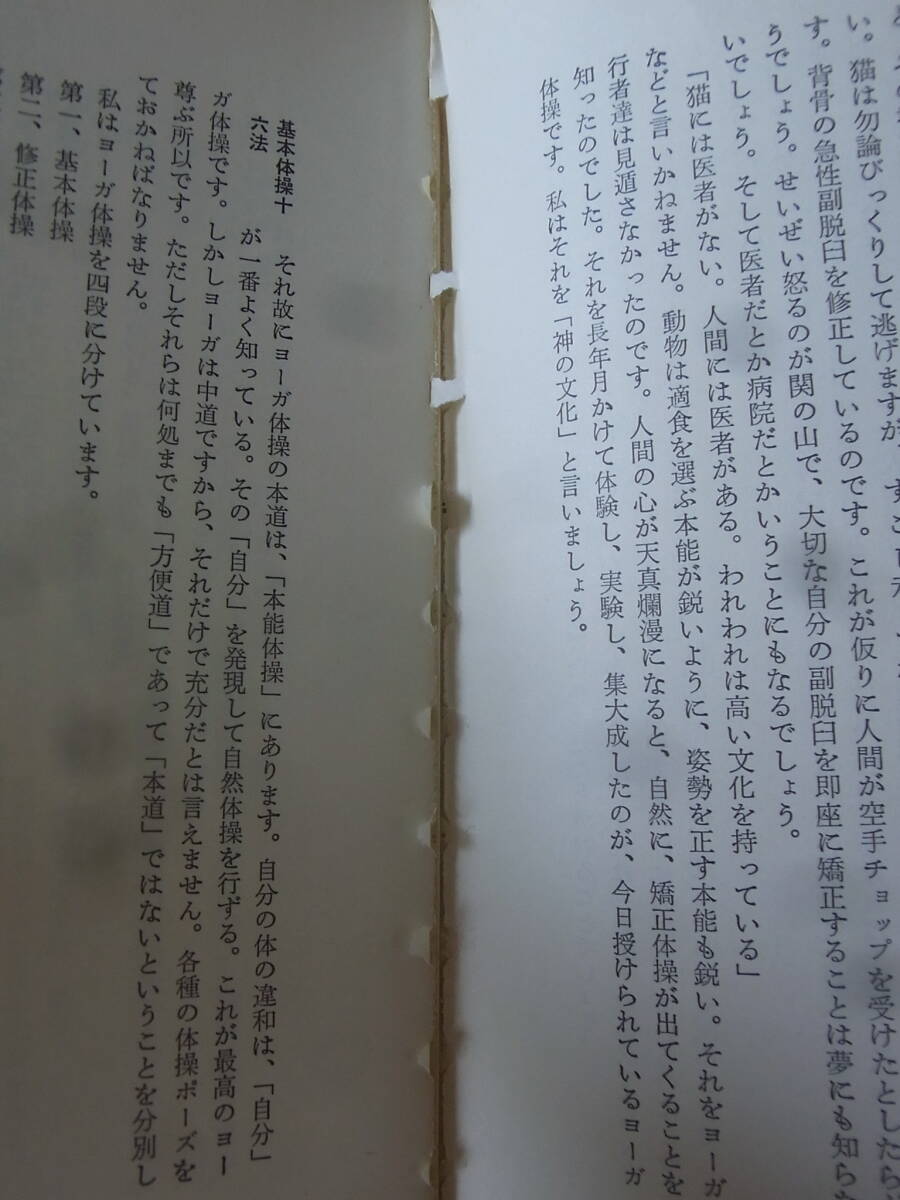 い。猫は勿論びっくりして逃げますが、すこし
す。背骨の急性副脱臼を修正しているのです。これが仮りに人間が空手チョップを受けたとしたら
うでしょう。せいぜい怒るのが関の山で、大切な自分の副脱臼を即座に矯正することは夢にも知ら
いでしょう。そして医者だとか病院だとかいうことにもなるでしょう。
「猫には医者がない。人間には医者がある。われわれは高い文化を持っている」
などと言いかねません。動物は適食を選ぶ本能が鋭いように、姿勢を正す本能も鋭い。それをヨーガ
行者達は見遁さなかったのです。人間の心が天真爛漫になると、自然に、矯正体操が出てくることを
知ったのでした。それを長年月かけて体験し、実験し、集大成したのが、今日授けられているヨーガ
体操です。私はそれを「神の文化」と言いましょう。
基本体操十
六法
それ故にヨーガ体操の本道は、「本能体操」にあります。自分の体の違和は、「自分」
が一番よく知っている。その「自分」を発現して自然体操を行ずる。これが最高のヨー
ガ体操です。しかしヨーガは中道ですから、それだけで充分だとは言えません。各種の体操ポーズを
尊ぶ所以です。ただしそれらは何処までも「方便道」であって「本道」ではないということを分別し
ておかねばなりません。
私はヨーガ体操を四段に分けています。
第一、基本体操
第二、修正体操